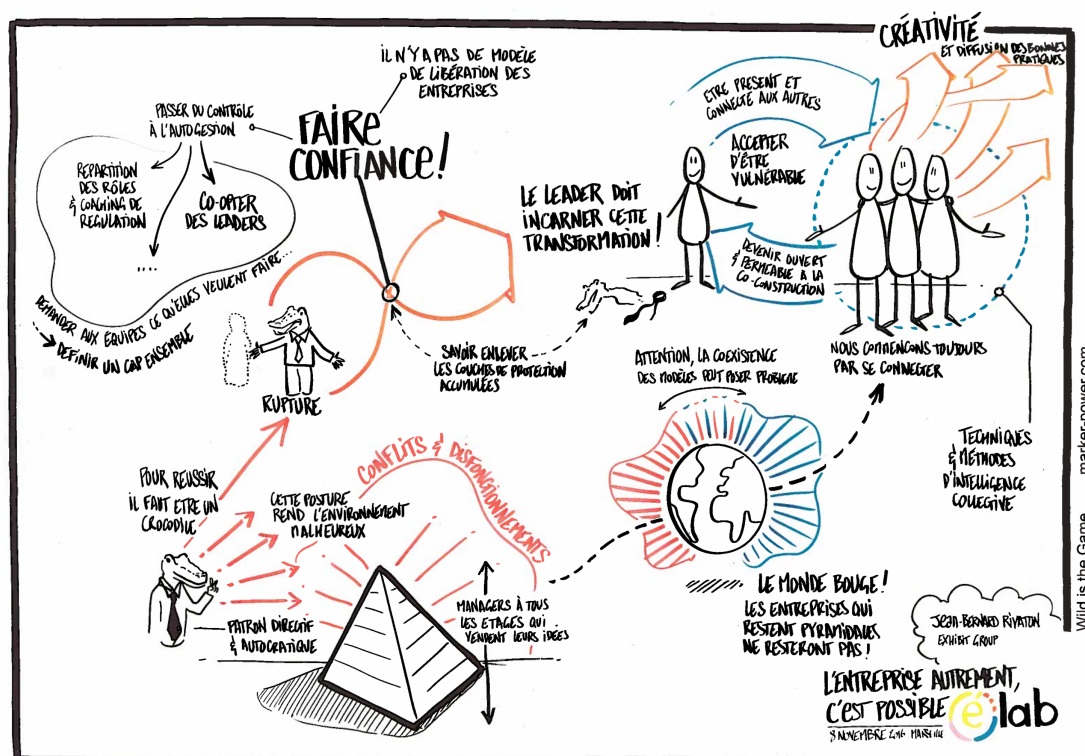 CRÉATIVITÉ
ET DIFFUSION DES BONNES
PRATIQUES
IL N'Y A PAS DE MODÈLE
DE LIBÉRATION DES
ENTREPRISES
FAIRE
CONFIANCE!
PASSER DU CONTRÔLE
À L'AUTOGESTION
REPARTITION
DES RÔLES
& COACHING DE
REGULATION
CO-OPTER
DES LEADERS
....
DEMANDER AUX ÉQUIPES CE QU'ELLES VEULENT FAIRE...
DEFINIR UN CAP ENSEMBLE
RUPTURE
SAVOIR ENLEVER
LES COUCHES DE PROTECTION
ACCUMULÉES
LE LEADER DOIT
INCARNER CETTE
TRANSFORMATION!
ETRE PRESENT ET
CONNECTÉ AUX AUTRES
ACCEPTER
D'ÊTRE
VULNÉRABLE
DEVENIR OUVERT
& PERMEABLE A LA
CO-CONSTRUCTION
NOUS COMMENCONS TOUJOURS
PAR SE CONNECTER
TECHNIQUES
& MÉTHODES
D'INTELLIGENCE
COLLECTIVE
ATTENTION, LA COEXISTENCE
DES MODÈLES PEUT POSER PROBLEME
POUR REUSSIR
IL FAUT ETRE UN
CROCODILE
CETTE POSTURE
REND L'ENVIRONNEMENT
MALHEUREUX
CONFLITS & DISFONCTIONNEMENTS
PATRON DIRECTIF
& AUTOCRATIQUE
MANAGERS À TOUS
LES ETAGES QUI
VENDENT LEURS IDÉES
LE MONDE BOUGE!
LES ENTREPRISES QUI
RESTENT PYRAMIDALES
NE RESTERONT PAS!
JEAN-BERNARD RIVATON
EXHIBIT GROUP
L'ENTREPRISE AUTREMENT,
C'EST POSSIBLE
é lab
NOVEMBRE 2016 MARSEILLE
Wild is the Game marker-power.com